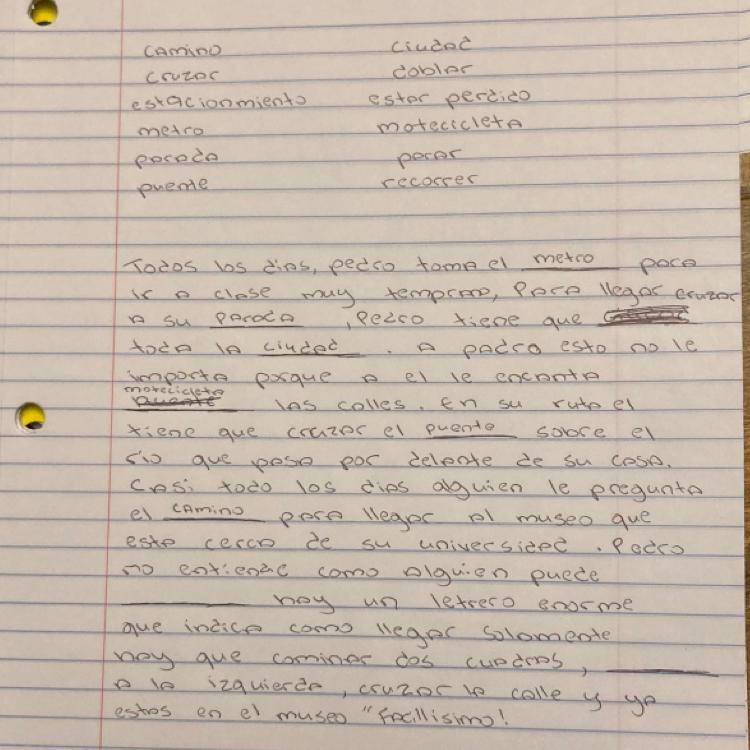 camino ciudad
cruzar doblar
estacionmiento estar perdido
metro motecicleta
parada parar
puente recorrer
Todos los dias, pedro toma el metro para
ir a clase muy temprano, Para llegar cruzar
a su parada, Pedro tiene que
toda la ciudad. a padro esto no le
importa porque a el le encanta
motecicleta
puente las calles. En su ruta el
tiene que cruzar el puente sobre el
rio que pasa por delante de su casa.
Casi todo los dias alguien le pregunta
el camino para llegar al museo que
esta cerca de su universidad. Pedro
no entiende como alguien puede
________ hay un letrero enorme
que indica como llegar solamente
hay que caminar dos cuadras, ________
a la izquierda, cruzar la calle y ya
estas en el museo "Facillisimo!